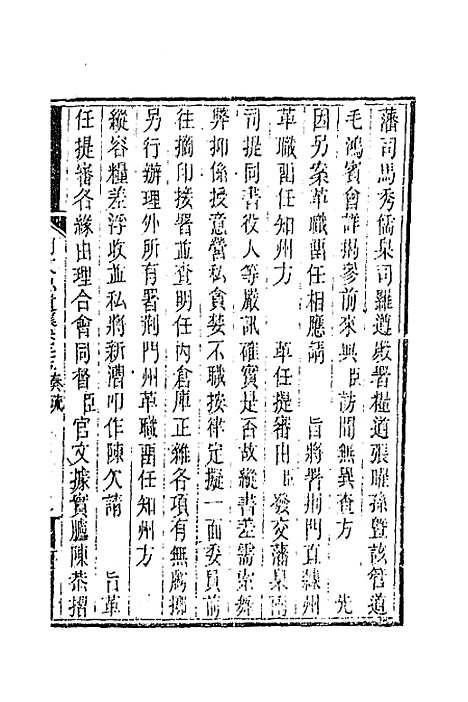 藩司馬秀儒臬司羅遵殿署糧道張曜孫暨該管道
毛鴻賓會詳揭參前來與臣訪聞無異查方 先
因另案革職留任相應請 旨將署荊門直隸州
革職留任知州方 革任提審由臣發交藩臬兩
司提同書役人等嚴訊確實是否故縱書差需索舞
弊抑係授意營私貪婪不職按律定擬一面委員前
往摘印接署並查明任內倉庫正雜各項有無虧挪
另行辦理外所有署荊門州革職留任知州方
縱容糧差浮收並私將新漕叩作陳欠請 旨革
任提審各緣由理合會同督臣官文據實臚陳恭摺
奏疏